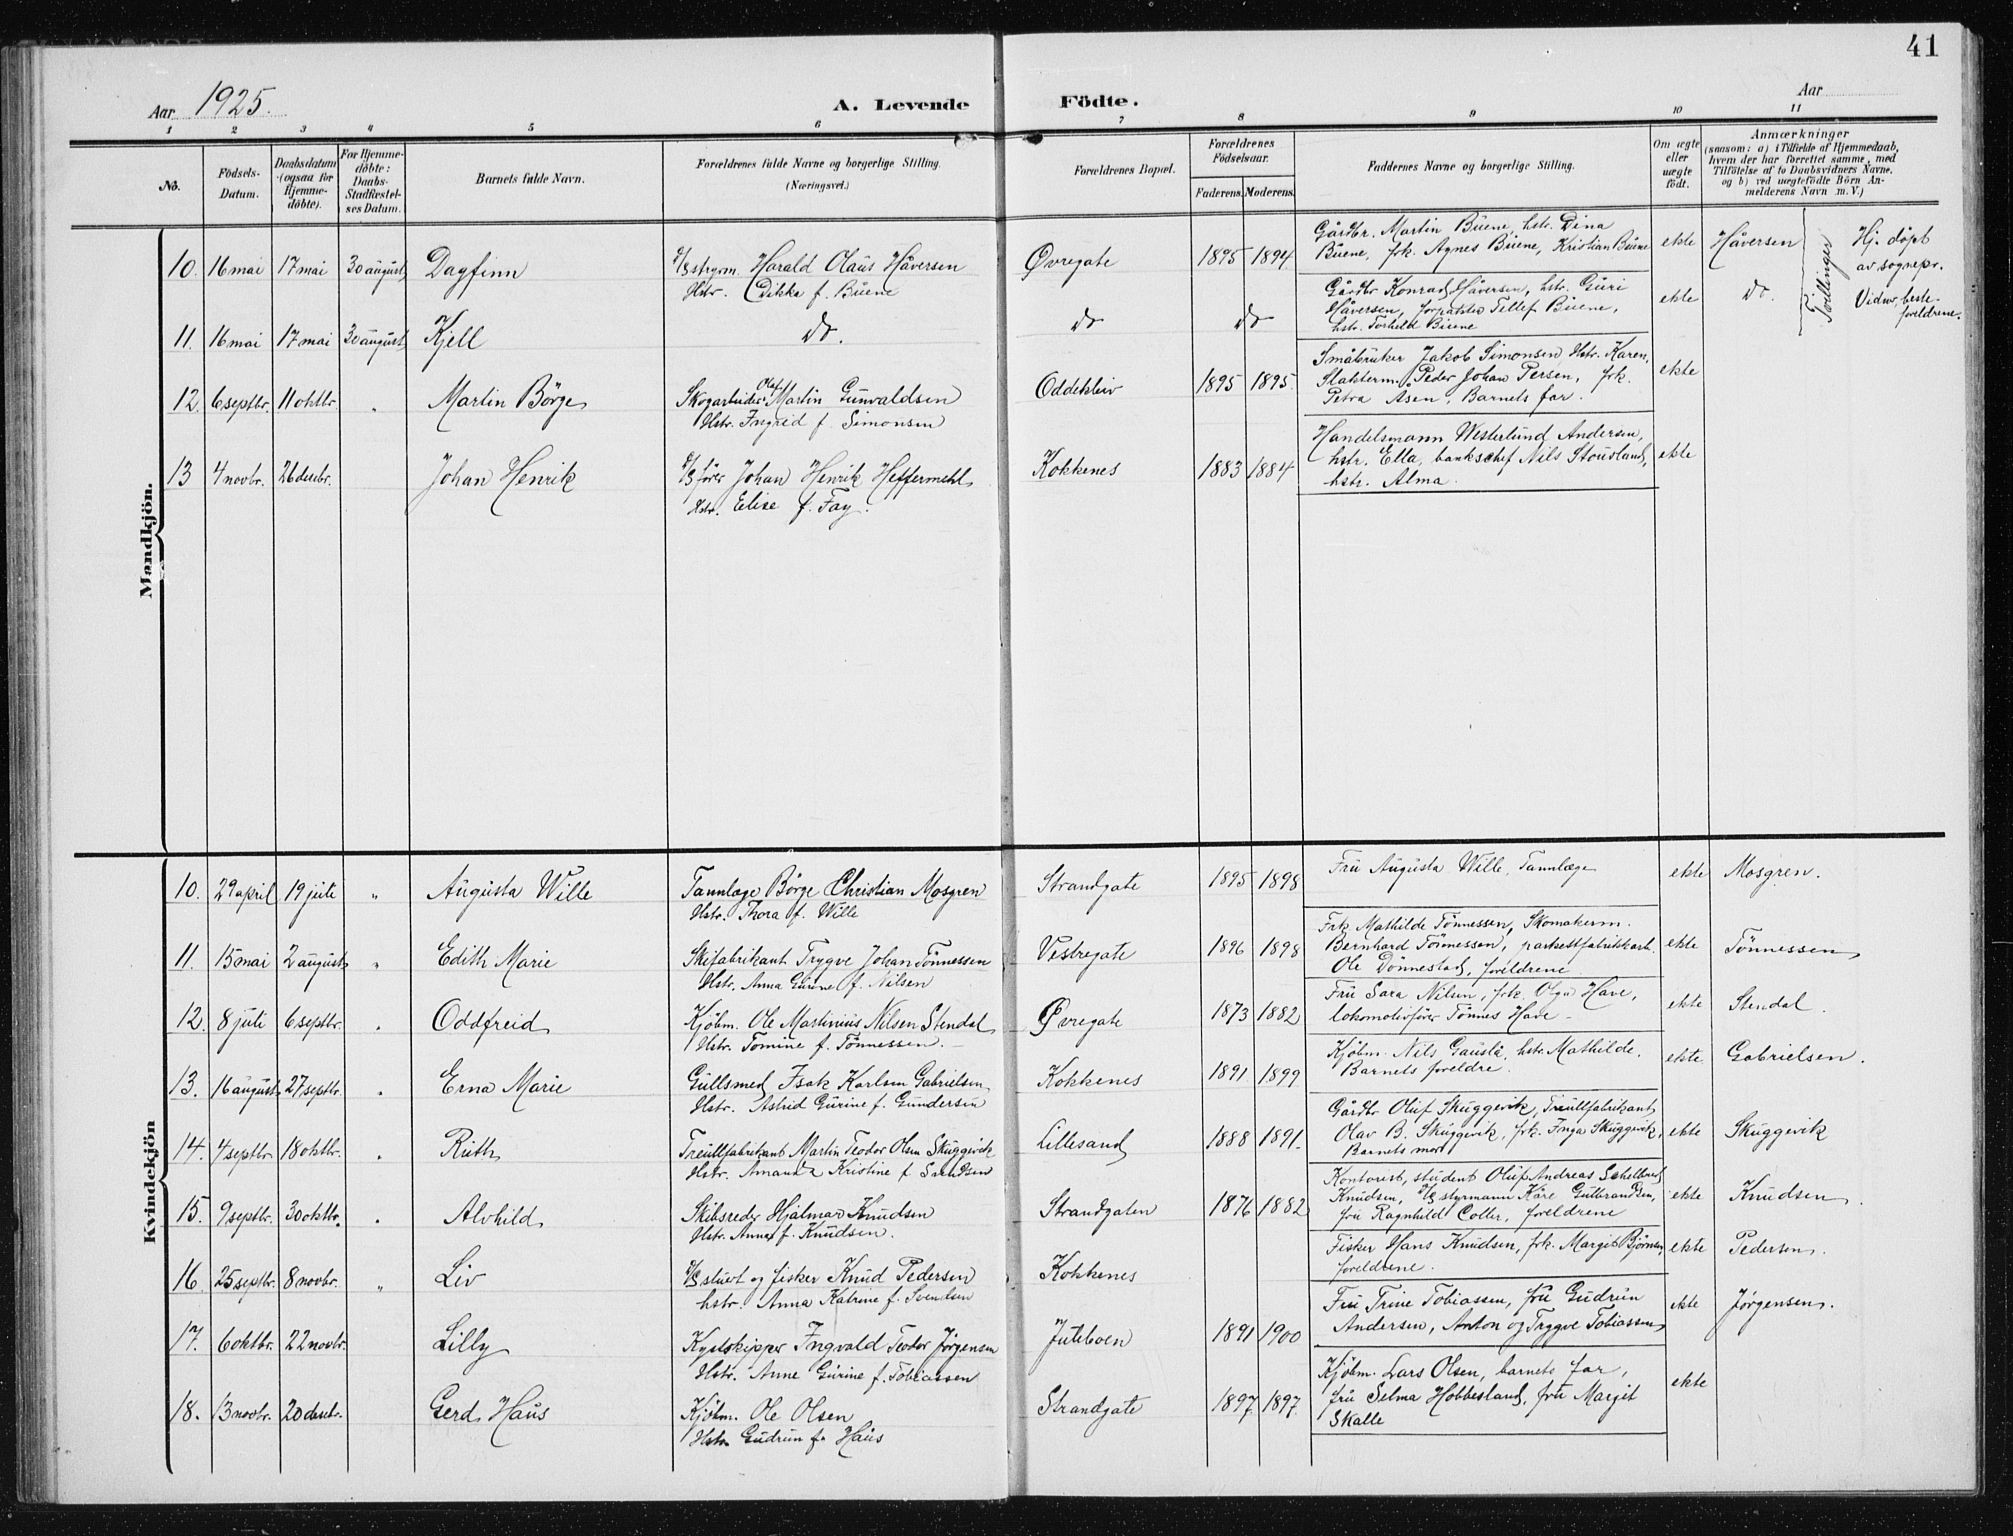 41
Aar 1925.
A. Levende Födte.
Aar
1 2 3 4 5 6 7 8 9 10 11
No.
Födsels-Datum.
Daabsdatum (ogsaa for Hjemme-döbte).
For Hjemme-döbte: Daabs-Stadfæstel-ses Datum.
Barnets fulde Navn.
Forældrenes fulde Navne og borgerlige Stilling.
(Næringsvei.)
Forældrenes Bopæl.
Forældrenes Födselsaar.
Faderens. Moderens.
Faddernes Navne og borgerlige Stilling.
Om ægte eller uægte födt.
Anmærkninger
(saasom: a) i Tilfælde af Hjemmedaab,
hvem der har forrettet samme, med
Tilföielse af to Daabsvidners Navne,
og b) ved uægtefödte Börn An-
melderens Navn m. V.)
Mandkjön.
10. 16 mai 17 mai 30 august Dagfinn
S/S styrm. Harald Olaus Håversen
Hstr. Dikka f. Buene
Øvregate 1895 1894
Gårdbr. Martin Buene, hstr. Dina
Buene, frk. Agnes Buene, Kristian Buene
ekte Håversen
Tvillinger
Hj. döpt
av sognepr.
Vidner, beste-
foreldrene.
11. 16 mai 17 mai 30 august Kjell
do.
do do
Gårdbr Konrad Håversen, hstr. Guri
Håversen, Tellef Buene,
hstr. Torhilde Buene
ekte do.
12. 6 septbr. 11 oktbr. " Martin Börge
Skogarbeider Olaf Martin Gunvaldsen
Hstr. Ingrid f. Simonsen
Oddekleiv 1895 1895.
Småbruker Jakob Simonsen Hstr. Karen,
Slakterm. Peder Johan Persen, frk.
Petra Åsen, Barnets far.
ekte
13 4 novbr. 26 desbr. Johan Henrik
S/S förer Johan Henrik Heffermehl
Hstr. Elise f. Fay.
Kokkenes 1883 1884
Handelsmann Westerlund Andersen,
hstr. Ella, bankschef Nils Stousland,
hstr. Alma.
ekte
Kvindekjön
10. 29 april 19 juli " Augusta Wille
Tannlæge Börge Christian Mosgren
Hstr. Thora f. Wille
Strandgate 1895 1898
Fru Augusta Wille, Tannlæge
ekte Mosgren.
11. 15 mai 2 august " Edith Marie
Skifabrikant Trygve Johan Tönnessen
Hstr. Anna Gurine f. Nilsen
Vestregate 1896 1898
Frk Mathilde Tönnessen, Skomakerm.
Bernhard Tönnessen, parkettfabrikkarb.
Ole Dönnestad, foreldrene
ekte Tönnessen
12. 8 juli 6 septbr. " Oddfreid
Kjöbm. Ole Martinius Nilsen Stendal
Hstr. Tomine f. Tönnessen.
Øvregate 1873 1882
Fru Sara Nilsen, frk. Olga Have,
lokomotivförer Tönnes Have
ekte Stendal.
13. 16 august 27 septbr. " Erna Marie
Gullsmed Isak Karlsen Gabrielsen
Hstr. Astrid Gurine f. Gundersen
Kokkenes 1891 1899
Kjöbm. Nils Gauslå, hstr. Mathilde.
Barnets foreldre.
ekte Gabrielsen.
14. 4 septbr 18 oktbr. " Ruth
Treullfabrikant Martin Teodor Olsen Skuggevik
Hstr. Amanda Kristine f Sandsen
Lillesand 1888 1891.
Gårdbr Oluf Skuggevik, Treullfabrikant
Olav B. Skuggevik, frk. Inga Skuggevik,
Barnets mor
ekte Skuggevik
15. 9 septbr. 30 oktbr. " Alvhild
Skibsreder Hjalmar Knudsen
Hstr. Anna f. Knudsen.
Strandgaten 1876 1882
Kontorist, student Oluf Andreas
Knudsen, S/S styrmann Kåre Gulbrandsen,
fru Ragnhild Coller, foreldrene
ekte Knudsen.
16. 25 septbr. 8 novbr. " Liv
S/S stuert og fisker Knud Pedersen
hstr. Anna Katrine f. Svendsen
Kokkenes
Fisker Hans Knudsen, frk. Margit Björnsen,
foreldrene.
ekte Pedersen.
17. 6 oktbr. 22 novbr. Lilly
Kystskipper Ingvald Teodor Jørgensen
Hstr. Anne Gurine f. Tobiassen
Juleboen 1891 1900
Fru Trine Tobiassen, fru Gudrun
Andersen, Anton og Trygve Tobiassen
ekte Jørgensen.
18. 13 novbr. 20 desbr. Gerd Haus
Kjöbm. Ole Olsen
Hstr Gudrun f. Haus
Strandgate 1897 1897.
Kjöbm. Lars Olsen, barnets far,
fru Selma Hobbesland, fru Margit
Skalle
ekte